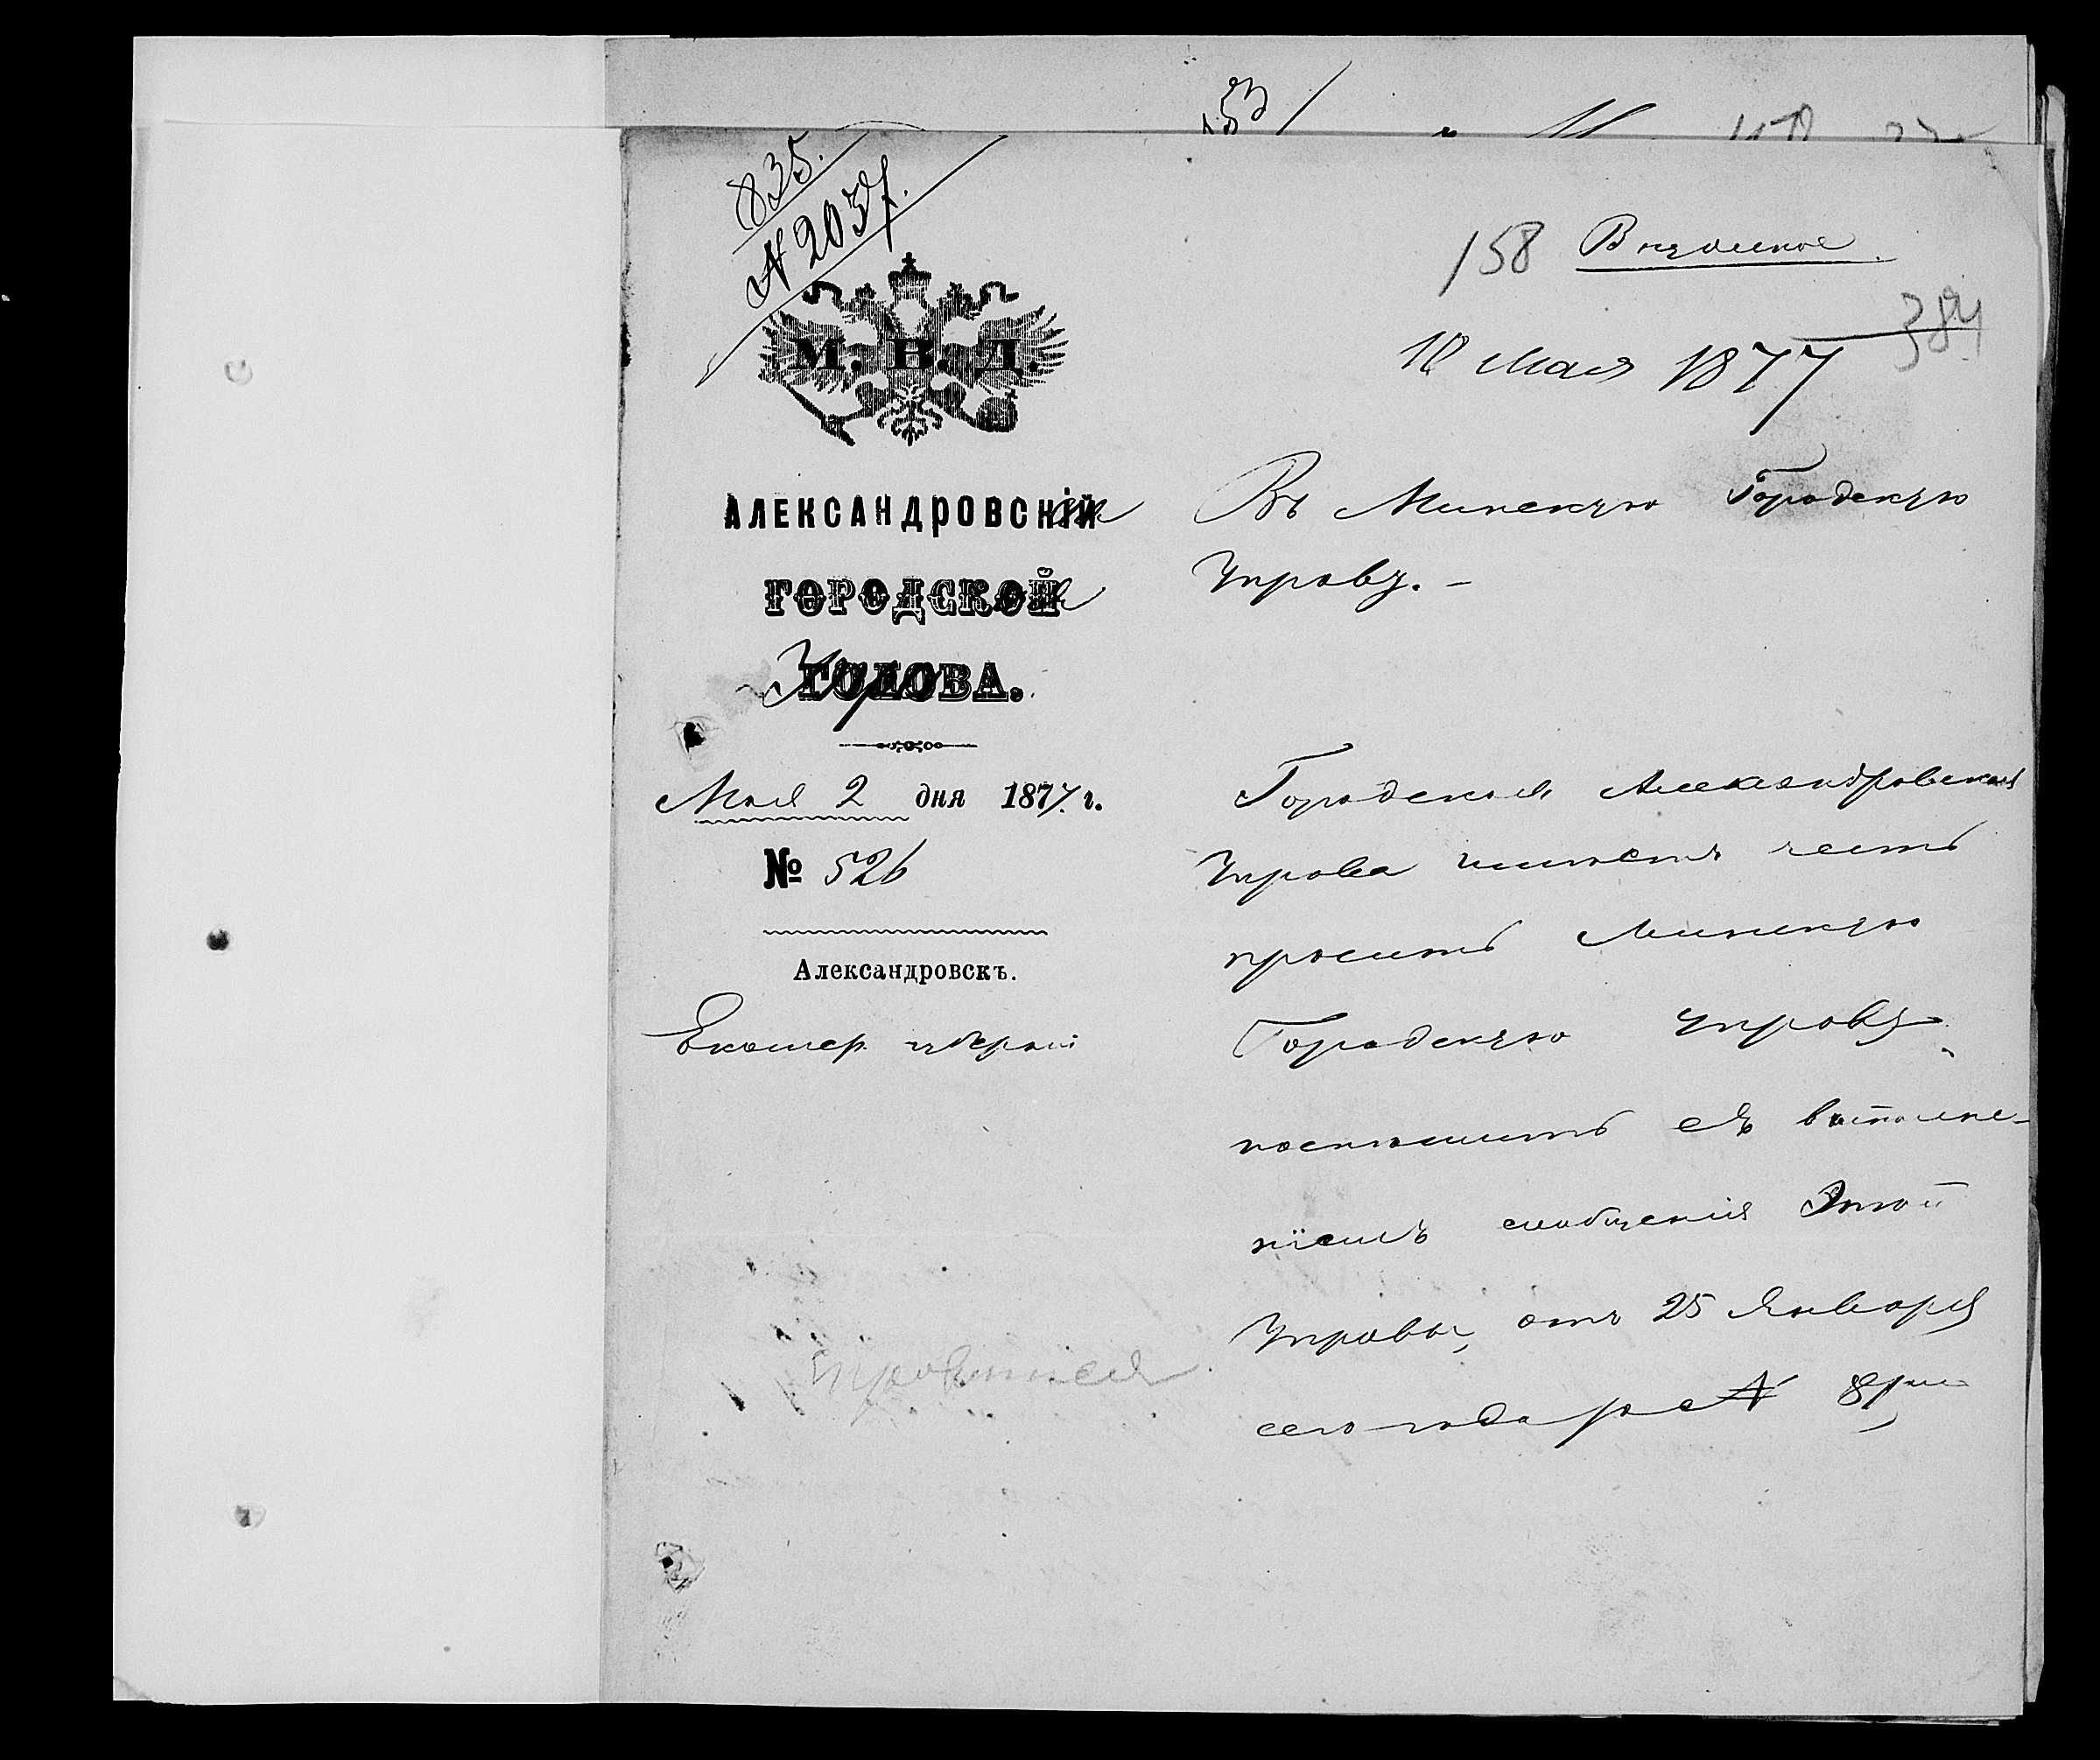 835.
№ 2037.
158
384
10 Мая 1877
М. В. Д.
АЛЕКСАНДРОВСКІЙ
ГОРОДСКОЙ
ГОЛОВА.
Мая 2 дня 1877 г.
№ 526
Александровскъ.
Екатер. губерніи
Въ Минскую Городскую
Управу. –
Городская Александровская
Управа имѣетъ честь
просить Минскую
Городскую Управу
поспѣшить съ выполне-
ніемъ сообщенія Этой
Управы, отъ 25 Января
сего года за №